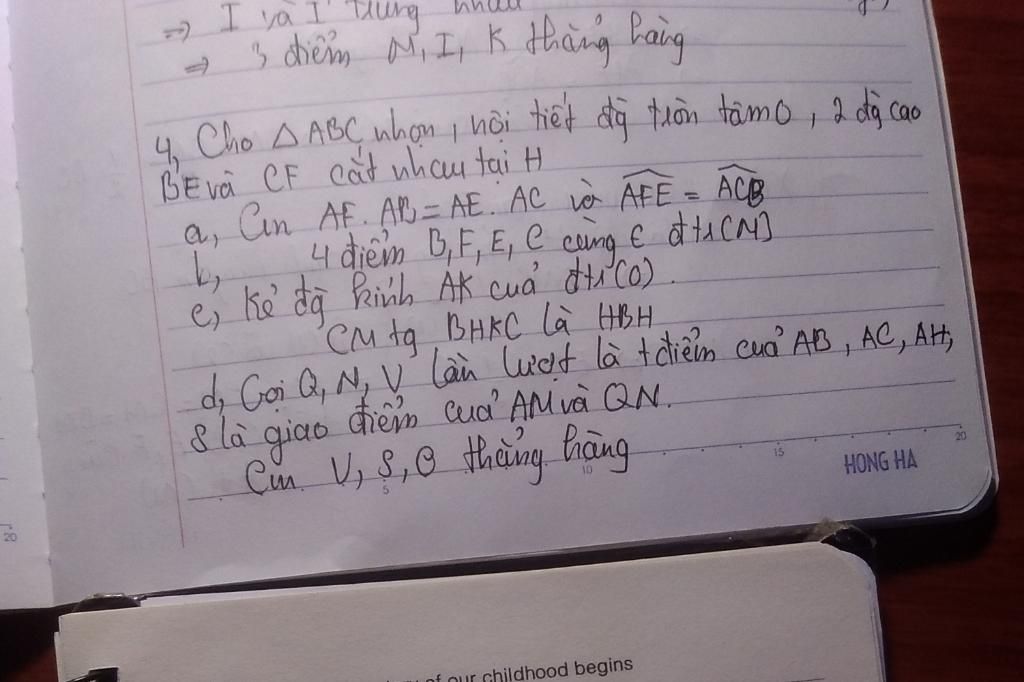 ⇒ I và I' trùng nhau
⇒ 3 điểm N, I, K thẳng hàng
4, Cho △ABC nhọn, nội tiết đg tròn tâm O, 2 đg cao
BE và CF cắt nhau tại H
a, Cm AF. AB = AE. AC và AFE = ACB
b, 4 điểm B, F, E, C cùng ∈ đtr(M)
c, Kẻ đg kính AK của đtr(O).
CM tg BHKC là HBH
d, Gọi Q, N, V lần lượt là tđiểm của AB, AC, AH,
S là giao điểm của AM và QN.
Cm V, S, O thẳng hàng
5 10 15 20
HONG HA
20
of our childhood begins